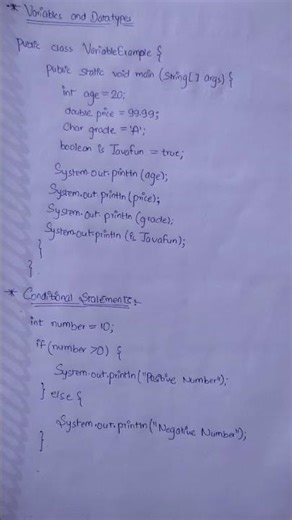 * Variables and Datatypes
Public class VariableExample {
public static void main (String[] args) {
int age = 20;
double price = 99.99;
Char grade = 'A';
boolean is Javafun = true;
System.out.println (age);
System.out.println (price);
System.out.println (grade);
System.out.println (is Javafun);
}
}
* Conditional Statements:-
int number = 10;
if (number >0) {
System.out.println ("Positive Number");
} else {
System.out.println ("Negative Number");
}